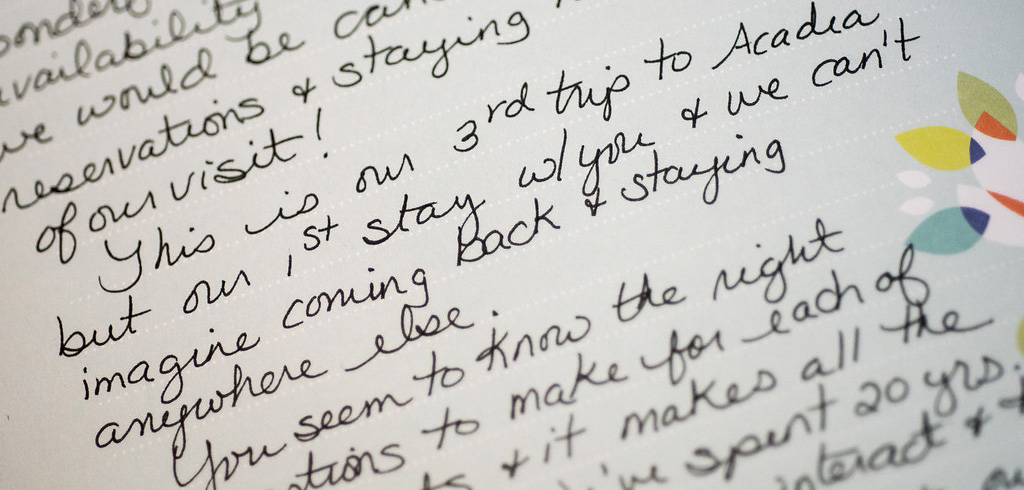 availability
we would be
reservations & staying
of our visit!
This is our 3rd trip to Acadia
but our 1st stay w/ you & we can't
imagine coming Back & staying
anywhere else.
You seem to know the right
to make for each of
& it makes all the
spent 20 yrs.
interact &